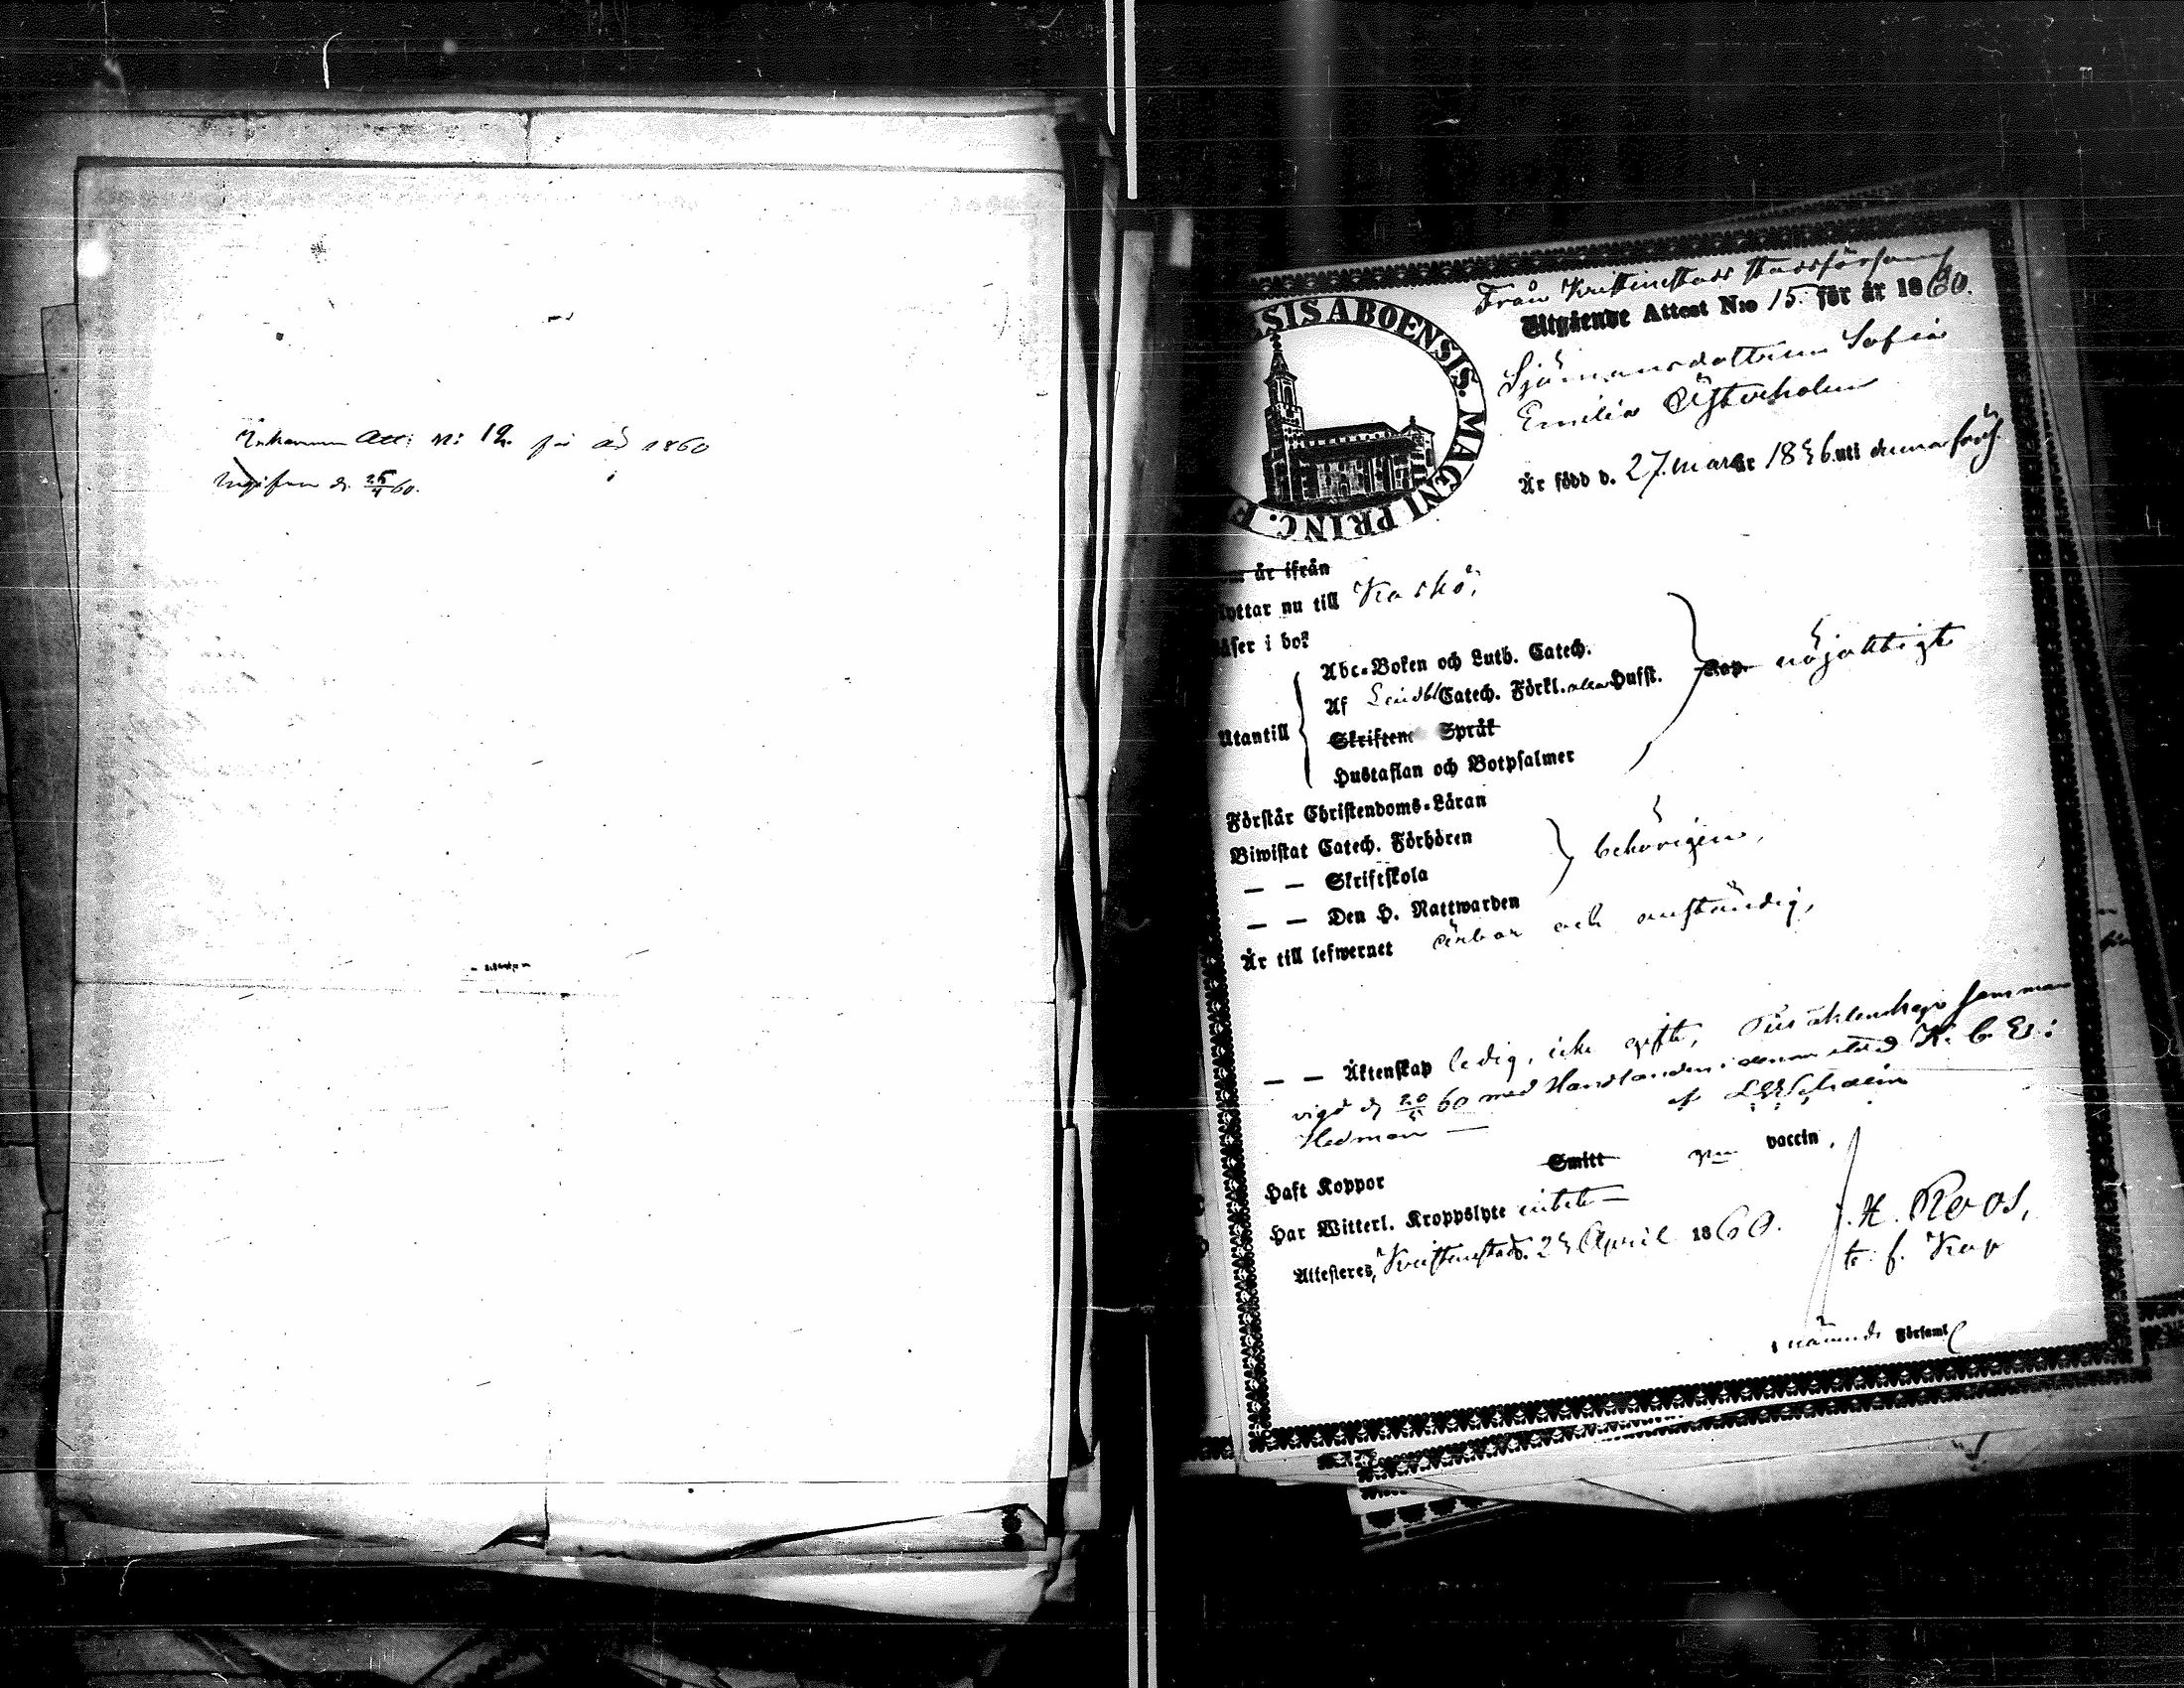 Inkommen Att: N: 12. för år 1860
Uppgifven d. 25/4 60.
SIS ABOENSIS. MAGNI PRINC. F
Från Kristinestads stadsförsaml
Utgående Attest N:o 15. för år 1860.
Sjömansdottren Sofia
Emilia Österholm
Är född d. 27. mars år 1836. uti denna förs.
är ifrån
lyttar nu till Kaskö,
äser i bok
Abc-Boken och Luth. Catech.
Af Lindbl Catech. Förkl. Husst.
Utantill
Skriftens Språk
Kap. nöjaktigt
Hustaflan och Botpsalmer
Förstår Christendoms-Läran
Biwistat Catech. Förhören
— — Skriftskola
behörigen,
— — Den H. Nattwarden
Är till lefwernet ärbar och anständig,
— — Äktenskap ledig, icke gift, Till äktenskap samman
vigd d. 20/4 60 med Handlanden i denna stad K. C. E:
Hedman — af
Haft Koppor Smitt gm vaccin,
Har Witterl. Kroppslyte intet —
Attesteras, Kristinestad. 23 April 1860.
H. Roos,
t. f. Kap
nämnde Församl